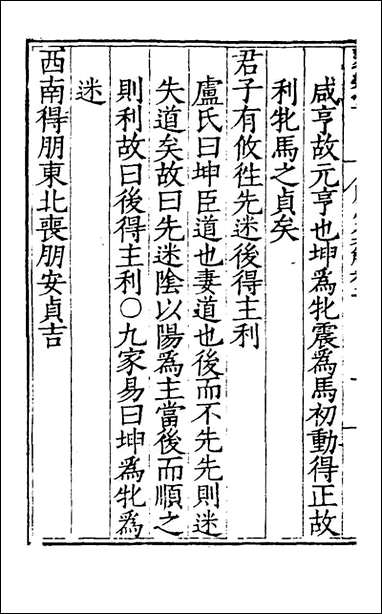 咸亨故元亨也坤爲牝震爲馬初動得正故
利牝馬之貞矣
君子有攸徃先迷後得主利
盧氏曰坤臣道也妻道也後而不先先則迷
失道矣故曰先迷隂以陽爲主當後而順之
則利故曰後得主利〇九家易曰坤爲牝爲
迷
西南得朋東北喪朋安貞吉